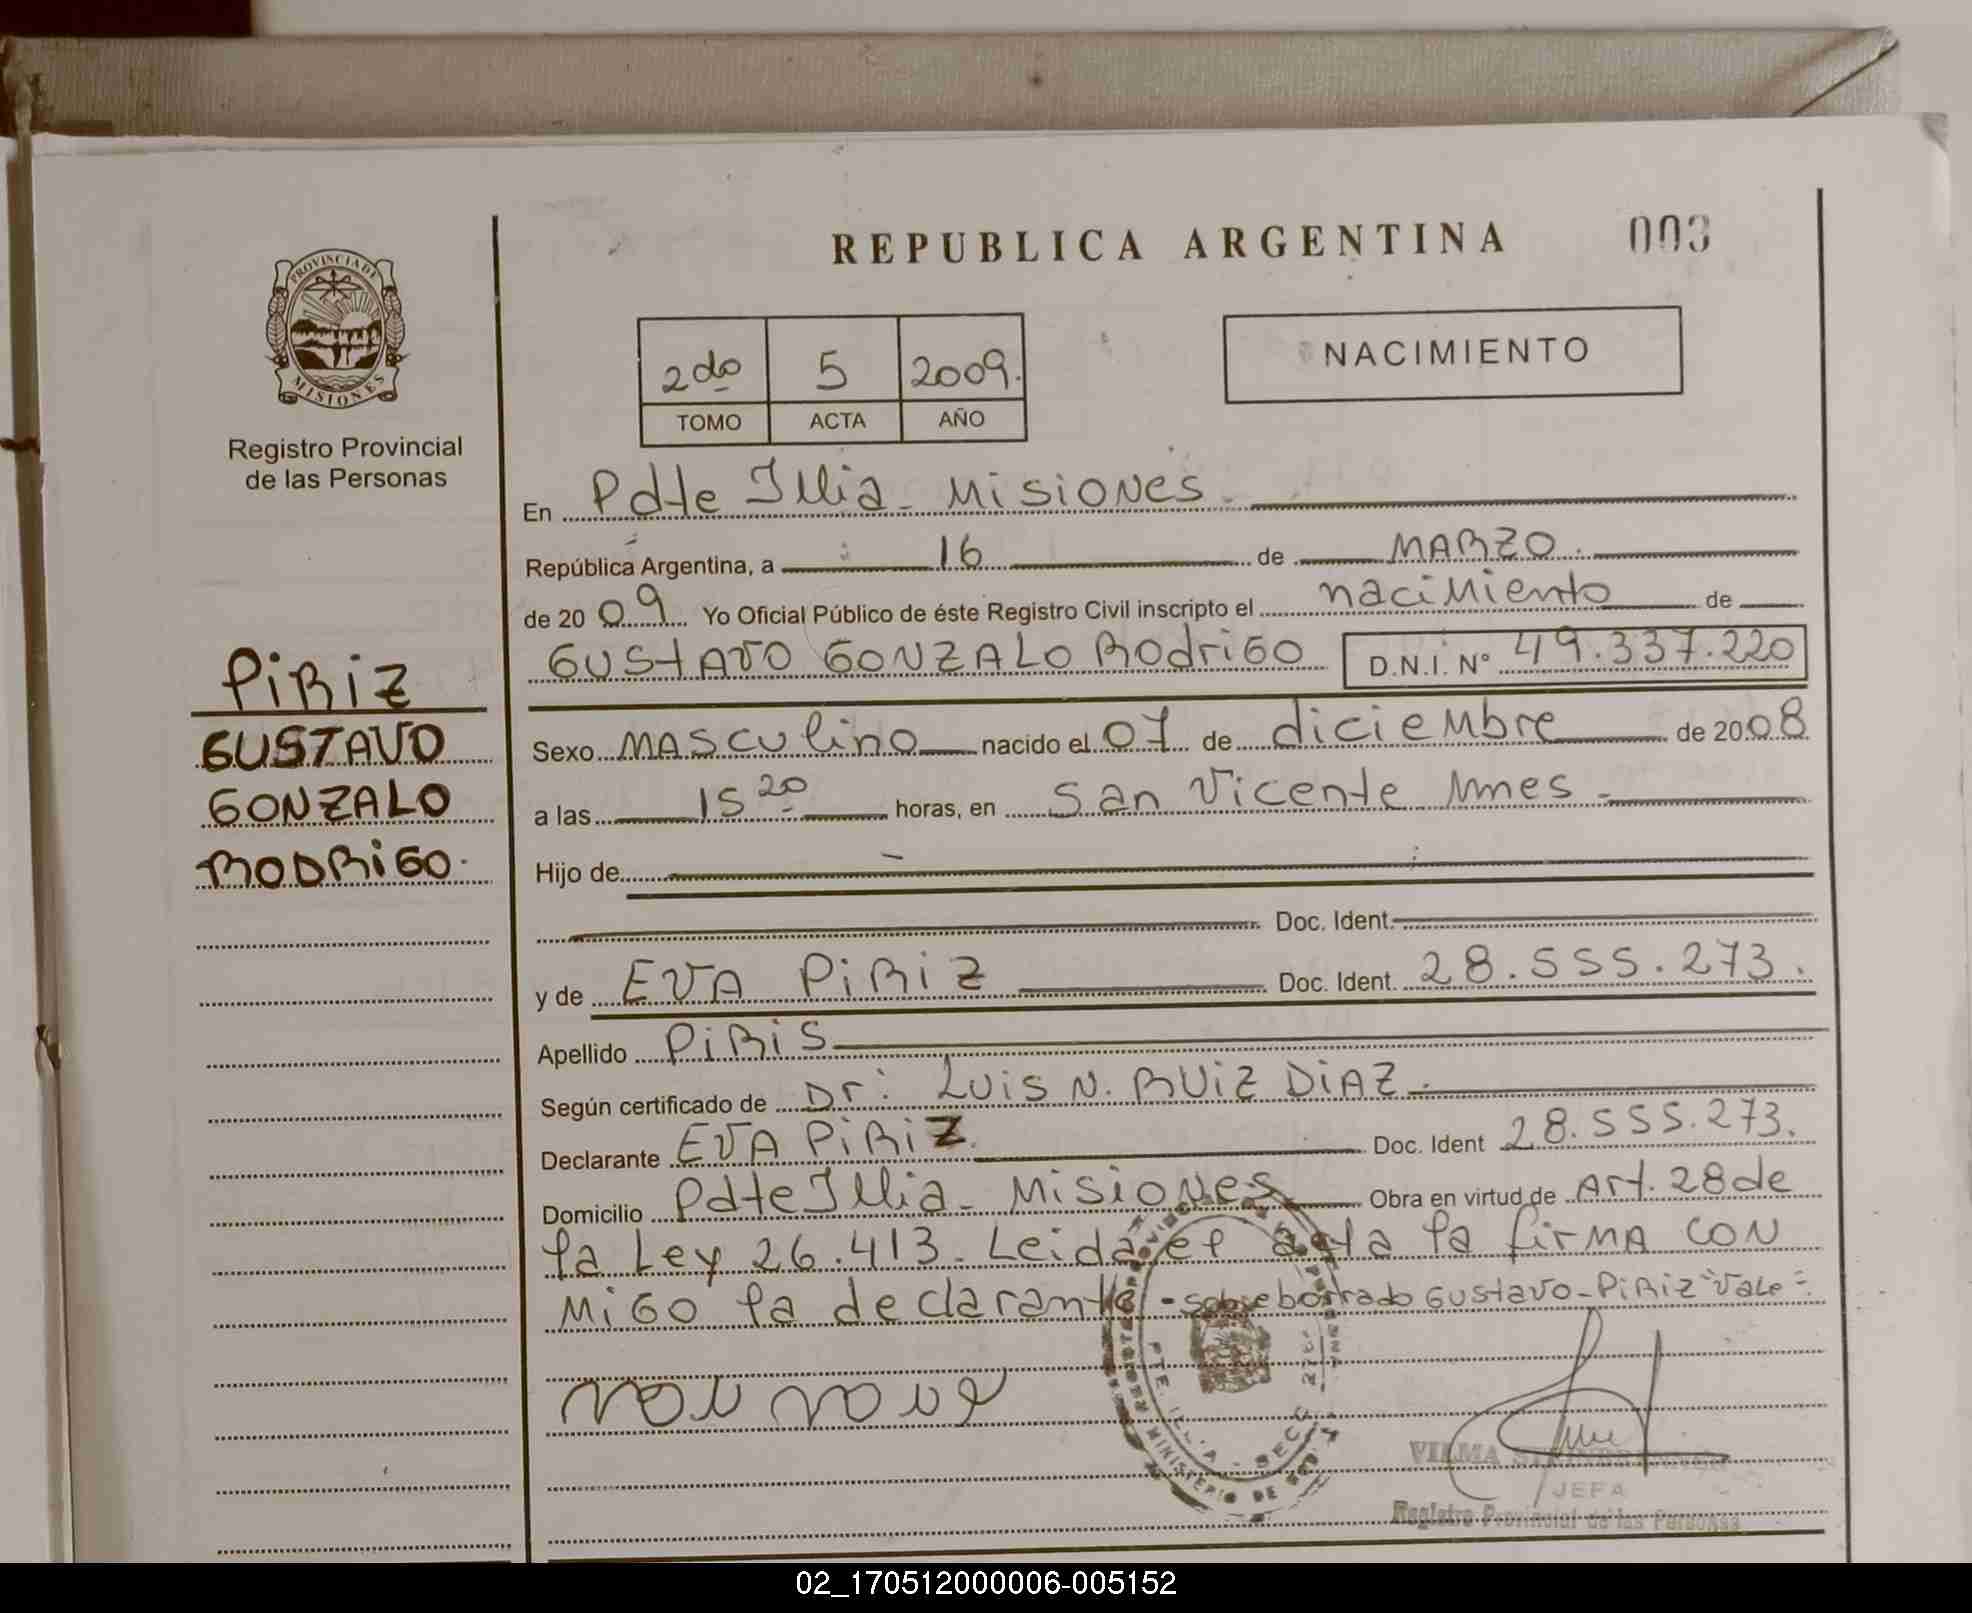 REPUBLICA ARGENTINA
003
PROVINCIA DE
MISIONES
Registro Provincial
de las Personas
2do 5 2009.
TOMO ACTA AÑO
NACIMIENTO
En Pdte Illia - Misiones.
República Argentina, a 16 de MARZO.
de 2009 Yo Oficial Público de éste Registro Civil inscripto el nacimiento de
GUSTAVO GONZALO RODRIGO D.N.I. Nº 49.337.220
PIRIZ
GUSTAVO
GONZALO
RODRIGO.
Sexo MASCULINO nacido el 07 de diciembre de 2008
a las 15 20 horas, en San Vicente Mnes -
Hijo de
Doc. Ident.
y de EVA PIRIZ Doc. Ident. 28.555.273.
Apellido PIRIS
Según certificado de Dr: LUIS N. RUIZ DIAZ.
Declarante EVA PIRIZ. Doc. Ident 28.555.273.
Domicilio Pdte Illia - Misiones Obra en virtud de Art. 28 de
la Ley 26.413. Leida el acta la firma CON
MIGO la declarante - sobreborrado Gustavo - PIRIZ "Vale"=
PTE. ILLIA
MINISTERIO DE
VILMA
JEFA
Registro Provincial de las Personas
02_170512000006-005152